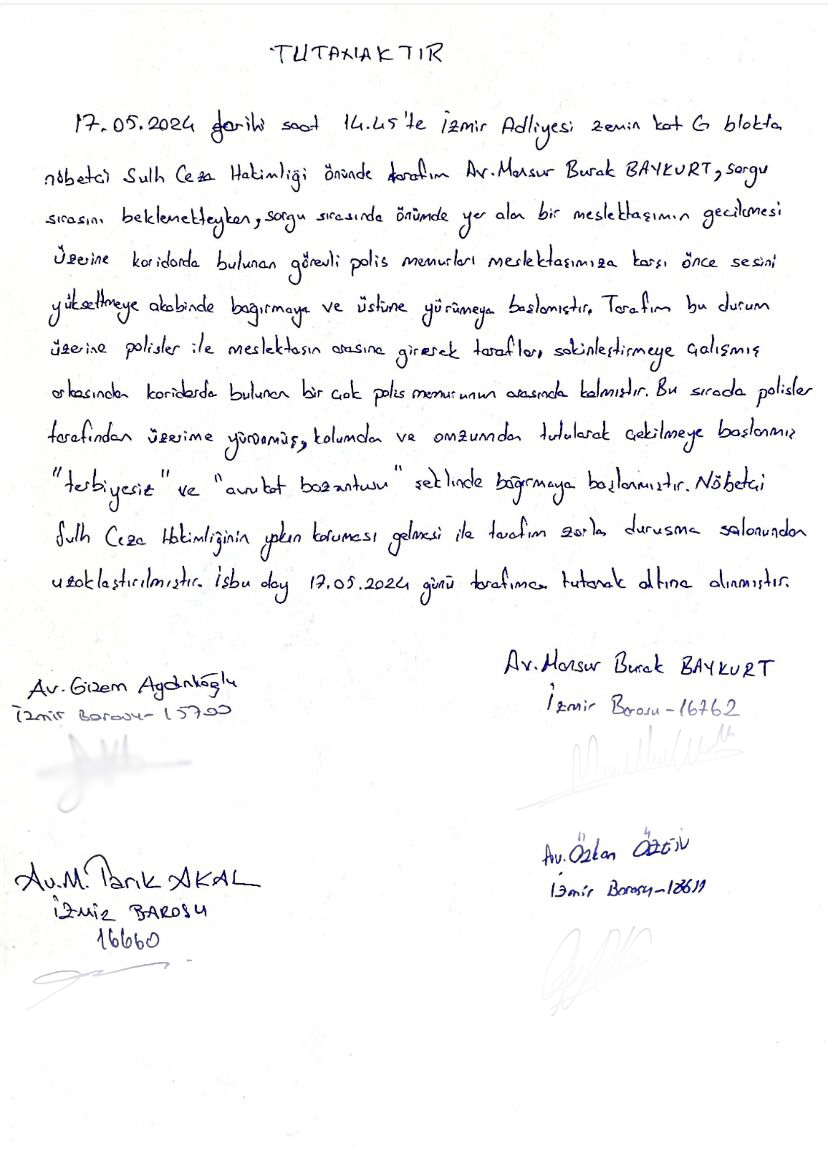 TUTANAKTIR
17.05.2024 tarihi saat 14.45'te İzmir Adliyesi zemin kat G blokta
nöbetci Sulh Ceza Hakimliği önünde tarafım Av. Mansur Burak BAYKURT, sorgu
sırasını beklemekteyken, sorgu sırasında önümde yer alan bir meslektaşımın gecilmesi
üzerine koridorda bulunan görevli polis memurları meslektaşımıza karşı önce sesini
yükseltmeye akabinde bağırmaya ve üstüne yürümeye başlamıştır. Tarafım bu durum
üzerine polisler ile meslektaşın arasına girerek tarafları sakinleştirmeye çalışmış
arkasından koridorda bulunan bir çok polis memurunun arasında kalmıştır. Bu sırada polisler
tarafından üzerime yürünmüş, kolumdan ve omzumdan tutularak çekilmeye başlanmış
"terbiyesiz" ve "avukat bozuntusu" şeklinde bağırmaya başlanmıştır. Nöbetci
Sulh Ceza Hakimliğinin yakın koruması gelmesi ile tarafım zorla duruşma salonundan
uzaklaştırılmıştır. İşbu olay 17.05.2024 günü tarafımca tutanak altına alınmıştır.
Av. Mansur Burak BAYKURT
İzmir Barosu-16762
Av. Gizem
İzmir Barosu-
Av. Özkan
İzmir Barosu-
Av. M. Tarık AKAL
İZMİR BAROSU
16660